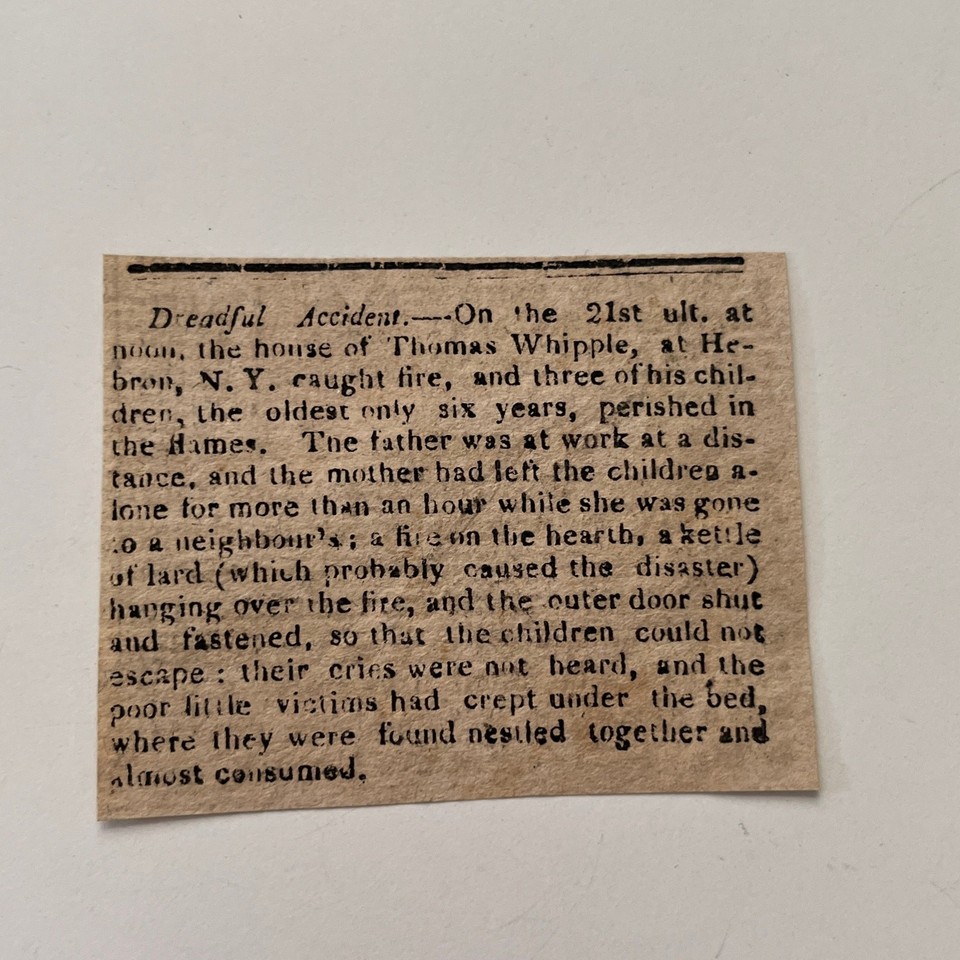 Dreadful Accident.—-On the 21st ult. at
noon, the house of Thomas Whipple, at He-
bron, N. Y. caught fire, and three of his chil-
dren, the oldest only six years, perished in
the flames. The father was at work at a dis-
tance, and the mother had left the children a-
lone for more than an hour while she was gone
to a neighbour's; a fire on the hearth, a kettle
of lard (which probably caused the disaster)
hanging over the fire, and the outer door shut
and fastened, so that the children could not
escape: their cries were not heard, and the
poor little victims had crept under the bed,
where they were found nestled together and
almost consumed.